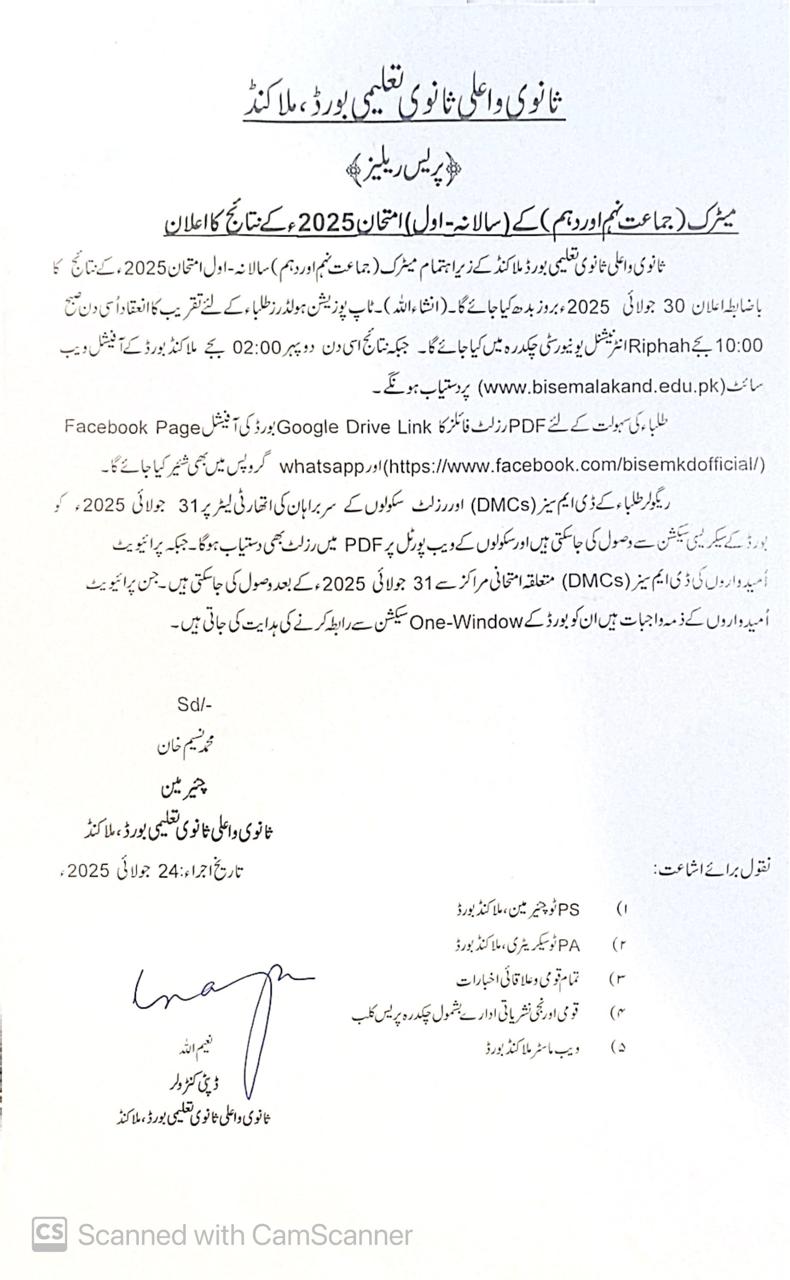 ثانوی و اعلی ثانوی تعلیمی بورڈ، ملاکنڈ
﴿پریس ریلیز﴾
میٹرک (جماعت نہم اور دہم) کے (سالانہ-اول) امتحان 2025ء کے نتائج کا اعلان
ثانوی و اعلی ثانوی تعلیمی بورڈ ملاکنڈ کے زیر اہتمام میٹرک (جماعت نہم اور دہم) سالانہ-اول امتحان 2025ء کے نتائج کا
باضابطہ اعلان 30 جولائی 2025ء بروز بدھ کیا جائے گا۔ (انشاءاللہ)۔ ٹاپ پوزیشن ہولڈرز طلباء کے لئے تقریب کا انعقاد اُسی دن صبح
10:00 بجے Riphah انٹرنیشنل یونیورسٹی چکدرہ میں کیا جائے گا۔ جبکہ نتائج اسی دن دوپہر 02:00 بجے ملاکنڈ بورڈ کے آفیشل ویب
سائٹ (www.bisemalakand.edu.pk) پر دستیاب ہونگے۔
طلباء کی سہولت کے لئے PDF رزلٹ فائلز کا Google Drive Link بورڈ کی آفیشل Facebook Page
(https://www.facebook.com/bisemkdofficial/) اور whatsapp گروپس میں بھی شئیر کیا جائے گا۔
ریگولر طلباء کے ڈی ایم سیز (DMCs) اور رزلٹ سکولوں کے سربراہان کی اتھارٹی لیٹر پر 31 جولائی 2025ء کو
بورڈ کے سیکریسی سیکشن سے وصول کی جاسکتی ہیں اور سکولوں کے ویب پورٹل پر PDF میں رزلٹ بھی دستیاب ہوگا۔ جبکہ پرائیویٹ
اُمیدواروں کی ڈی ایم سیز (DMCs) متعلقہ امتحانی مراکز سے 31 جولائی 2025ء کے بعد وصول کی جاسکتی ہیں۔ جن پرائیویٹ
اُمیدواروں کے ذمہ واجبات ہیں ان کو بورڈ کے One-Window سیکشن سے رابطہ کرنے کی ہدایت کی جاتی ہیں۔
Sd/-
محمد نسیم خان
چئیرمین
ثانوی و اعلی ثانوی تعلیمی بورڈ، ملاکنڈ
تاریخ اجراء: 24 جولائی 2025ء
نقول برائے اشاعت:
۱) PS ٹو چئیرمین، ملاکنڈ بورڈ
۲) PA ٹو سیکریٹری، ملاکنڈ بورڈ
۳) تمام قومی و علاقائی اخبارات
۴) قومی اور نجی نشریاتی ادارے بشمول چکدرہ پریس کلب
۵) ویب ماسٹر ملاکنڈ بورڈ
نعیم اللہ
ڈپٹی کنٹرولر
ثانوی و اعلی ثانوی تعلیمی بورڈ، ملاکنڈ
CS Scanned with CamScanner